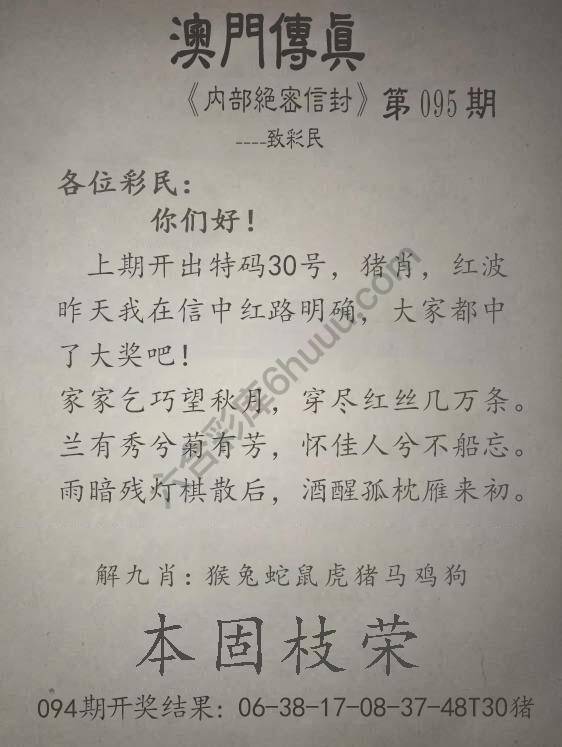 澳門傳眞
《内部絕密信封》第095期
----致彩民
各位彩民：
你们好！
上期开出特码30号，猪肖，红波
昨天我在信中红路明确，大家都中
了大奖吧！
家家乞巧望秋月，穿尽红丝几万条。
兰有秀兮菊有芳，怀佳人兮不船忘。
雨暗残灯棋散后，酒醒孤枕雁来初。
六合彩库6huuu.com
解九肖：猴兔蛇鼠虎猪马鸡狗
本固枝荣
094期开奖结果：06-38-17-08-37-48T30猪